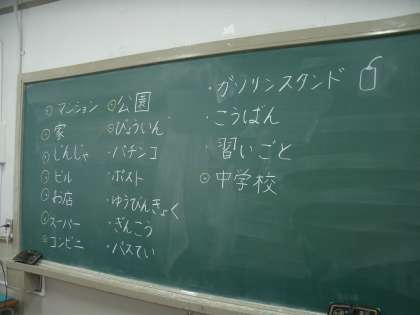 マンション
家
じんじゃ
ビル
お店
スーパー
コンビニ
公園
びょういん
パチンコ
ポスト
ゆうびんきょく
ぎんこう
バスてい
・ガソリンスタンド
・こうばん
・習いごと
中学校